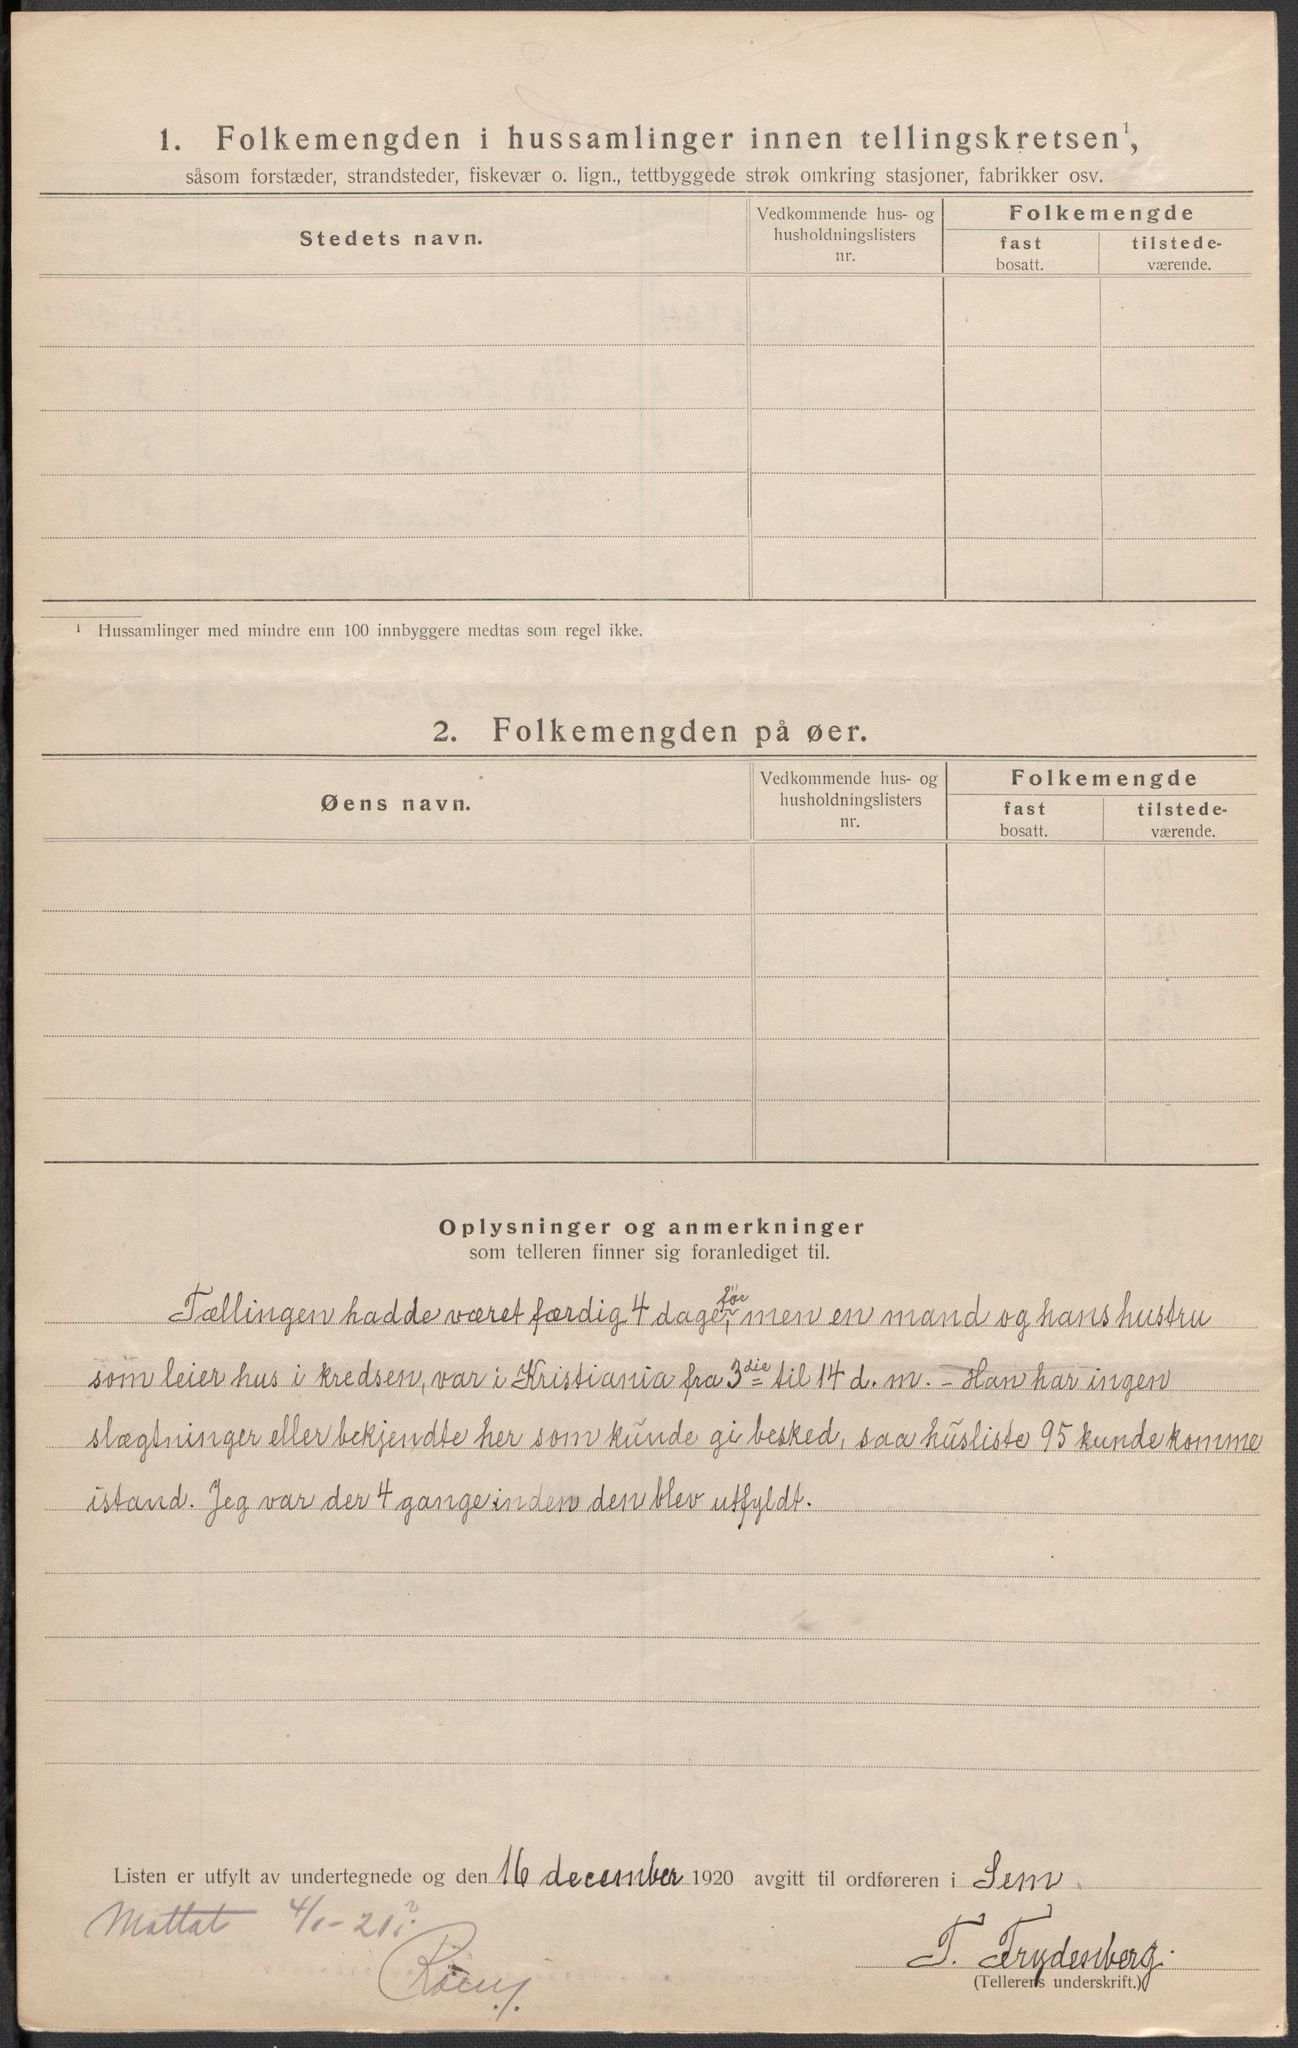 1. Folkemengden i hussamlinger innen tellingskretsen¹,
såsom forstæder, strandsteder, fiskevær o. lign., tettbyggede strøk omkring stasjoner, fabrikker osv.
Stedets navn.
Vedkommende hus- og husholdningslisters nr.
Folkemengde
fast bosatt.
tilstede-værende.
¹ Hussamlinger med mindre enn 100 innbyggere medtas som regel ikke.
2. Folkemengden på øer.
Øens navn.
Vedkommende hus- og husholdningslisters nr.
Folkemengde
fast bosatt.
tilstede-værende.
Oplysninger og anmerkninger
som telleren finner sig foranlediget til.
Tællingen hadde været færdig 4 dage før, men en mand og hans hustru
som leier hus i kredsen, var i Kristiania fra 3die til 14 d. m. – Han har ingen
slægtninger eller bekjendte her som kunde gi besked, saa husliste 95 kunde komme
istand. Jeg var der 4 gange inden den blev utfyldt.
Listen er utfylt av undertegnede og den 16 december 1920 avgitt til ordføreren i Sem.
Mottat 4/1-21.
T. Trydenberg.
(Tellerens underskrift.)